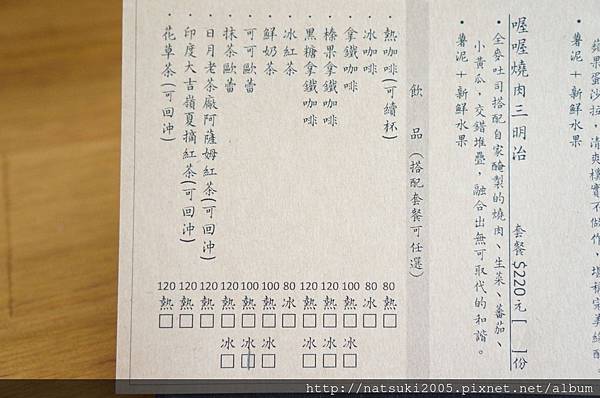 ・薯泥+新鮮水果
喔喔燒肉三明治 套餐$220元[ ]份
・全麥吐司搭配自家醃製的燒肉、生菜、蕃茄、
小黃瓜，交錯堆疊，融合出無可取代的和諧。
・薯泥+新鮮水果
飲 品 (搭配套餐可任選)
・熱咖啡(可續杯) 80 熱□
・冰咖啡 80 冰□
・拿鐵咖啡 100 熱□ 冰□
・榛果拿鐵咖啡 120 熱□ 冰□
・黑糖拿鐵咖啡 120 熱□ 冰□
・冰紅茶 80 冰□
・鮮奶茶 100 熱□ 冰□
・可可歐蕾 100 熱□ 冰□
・抹茶歐蕾 120 熱□ 冰□
・日月老茶廠阿薩姆紅茶(可回沖) 120 熱□
・印度大吉嶺夏摘紅茶(可回沖) 120 熱□
・花草茶(可回沖) 120 熱□
http://natsuki2005.pixnet.net/album